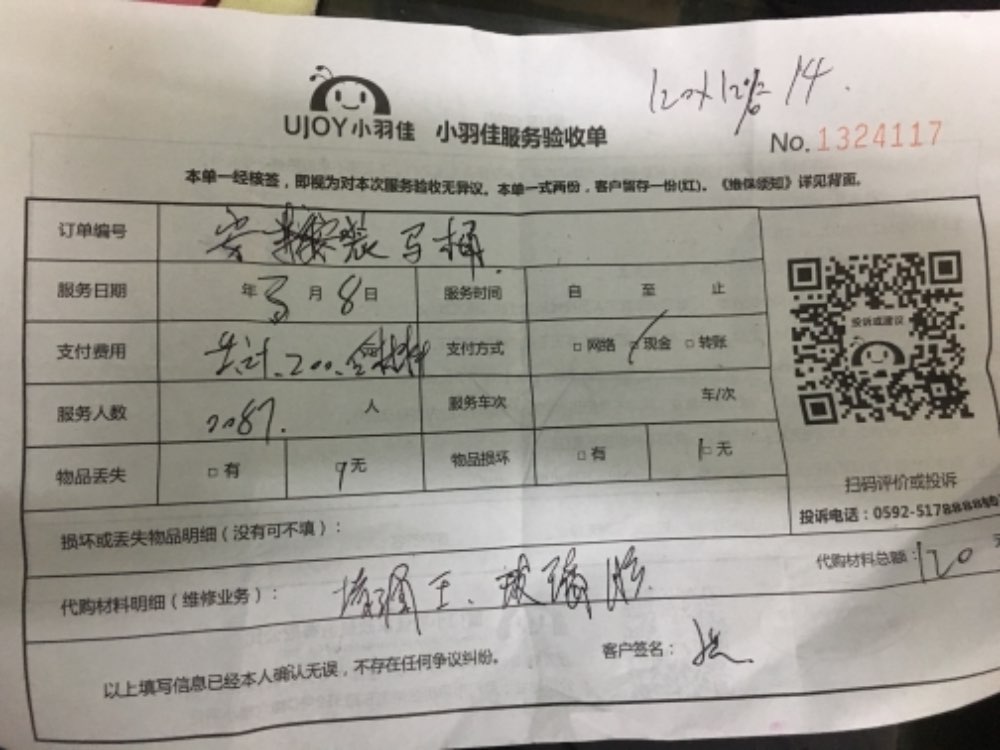 120×12%=14.
UJOY小羽佳 小羽佳服务验收单
No.1324117
本单一经核签，即视为对本次服务验收无异议。本单一式两份，客户留存一份(红)。《维保须知》详见背面。
订单编号 安装马桶
服务日期 年3月8日 服务时间 自 至 止
投诉或建议
支付费用 共计.200.含材料 支付方式 □网络 □现金 □转账
服务人数 0087. 人 服务车次 车/次
物品丢失 □有 □无 物品损坏 □有 □无
扫码评价或投诉
投诉电话：0592-5178888
损坏或丢失物品明细（没有可不填）：
代购材料明细（维修业务）： 堵漏王、玻璃胶. 代购材料总额：120 元
以上填写信息已经本人确认无误，不存在任何争议纠纷。 客户签名：